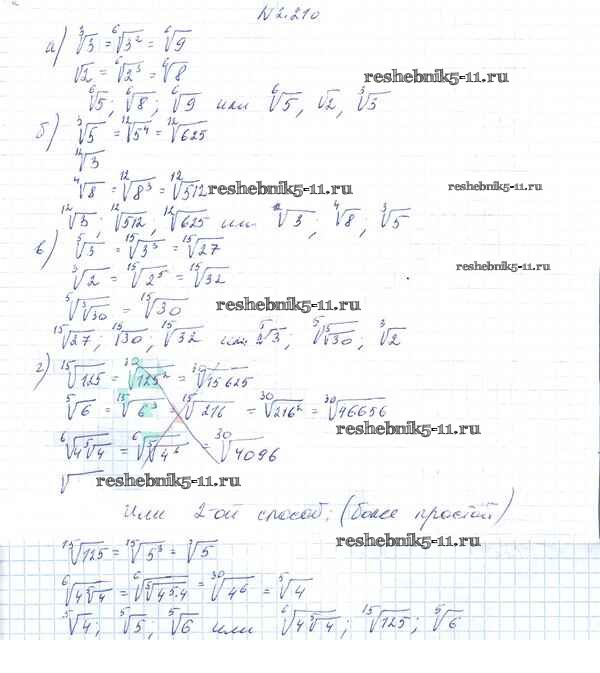 N 2.210
а) ∛3 = ⁶√3² = ⁶√9
√2 = ⁶√2³ = ⁶√8
reshebnik5-11.ru
⁶√5; ⁶√8; ⁶√9 или ⁶√5, √2, ∛3
б) ∛5 = ¹²√5⁴ = ¹²√625
¹²√3
⁴√8 = ¹²√8³ = ¹²√512
reshebnik5-11.ru
reshebnik5-11.ru
¹²√3; ¹²√512, ¹²√625 или ¹²√3, ⁴√8; ∛5
в) ⁵√3 = ¹⁵√3³ = ¹⁵√27
∛2 = ¹⁵√2⁵ = ¹⁵√32
reshebnik5-11.ru
⁵√∛30 = ¹⁵√30
reshebnik5-11.ru
¹⁵√27; ¹⁵√30; ¹⁵√32 или ⁵√3; ⁵√∛30; ∛2
г) ¹⁵√125 = ³⁰√125² = ³⁰√15625
⁵√6 = ¹⁵√6³ = ¹⁵√216 = ³⁰√216² = ³⁰√46656
reshebnik5-11.ru
⁶√4⁵√4 = ⁶√⁵√4⁶ = ³⁰√4096
√
reshebnik5-11.ru
Или 2-ой способ: (более простой)
¹⁵√125 = ¹⁵√5³ = ⁵√5
reshebnik5-11.ru
⁶√4⁵√4 = ⁶√⁵√4⁵·4 = ³⁰√4⁶ = ⁵√4
⁵√4; ⁵√5; ⁵√6 или ⁶√4⁵√4; ¹⁵√125; ⁵√6